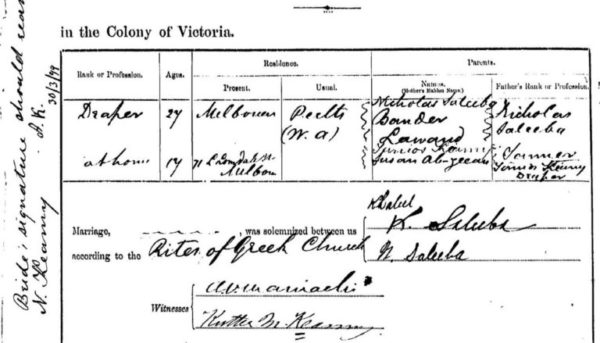 in the Colony of Victoria.
Rank or Profession.
Ages.
Residence.
Present.
Usual.
Parents.
Names.
(Mother's Maiden Name.)
Father's Rank or Profession.
Draper
27
Melbourn
Perth
(W.A)
Nicholas Saleeba
Bander
Lawand
Nicholas
Saleeba
at home
17
71 Lonsdale St
Melbou
Susan
Draper
Marriage, , was solemnized between us
according to the Rites of Greek Church
K. Saleeba
N. Saleeba
Witnesses
Kearny
Bride's signature should read
N. Kearny J.K.
30/3/99